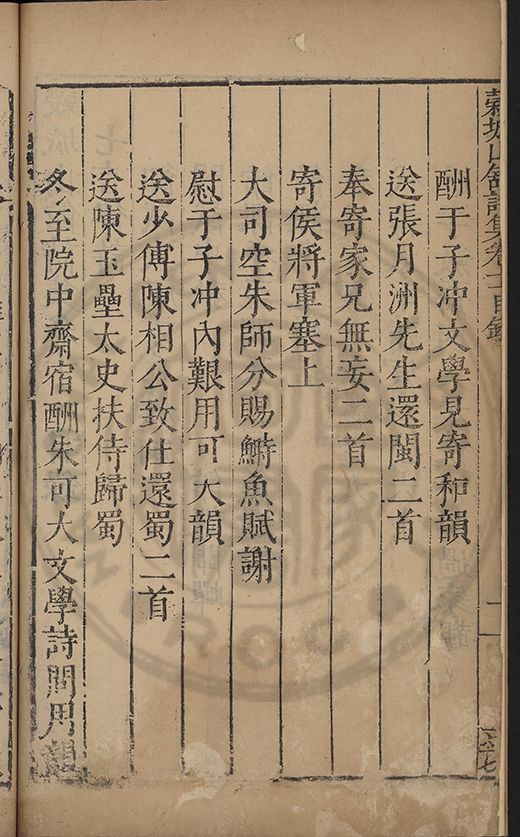 穀城山館詩集卷
酬于子冲文學見寄和韻
送張月洲先生還閩二首
奉寄家兄無妄二首
寄侯將軍塞上
大司空朱師分賜鰣魚賦謝
慰于子冲內艱用可大韻
送少傅陳相公致仕還蜀二首
送陳玉壘太史扶侍歸蜀
冬至院中齋宿酬朱可大文學詩問用韻